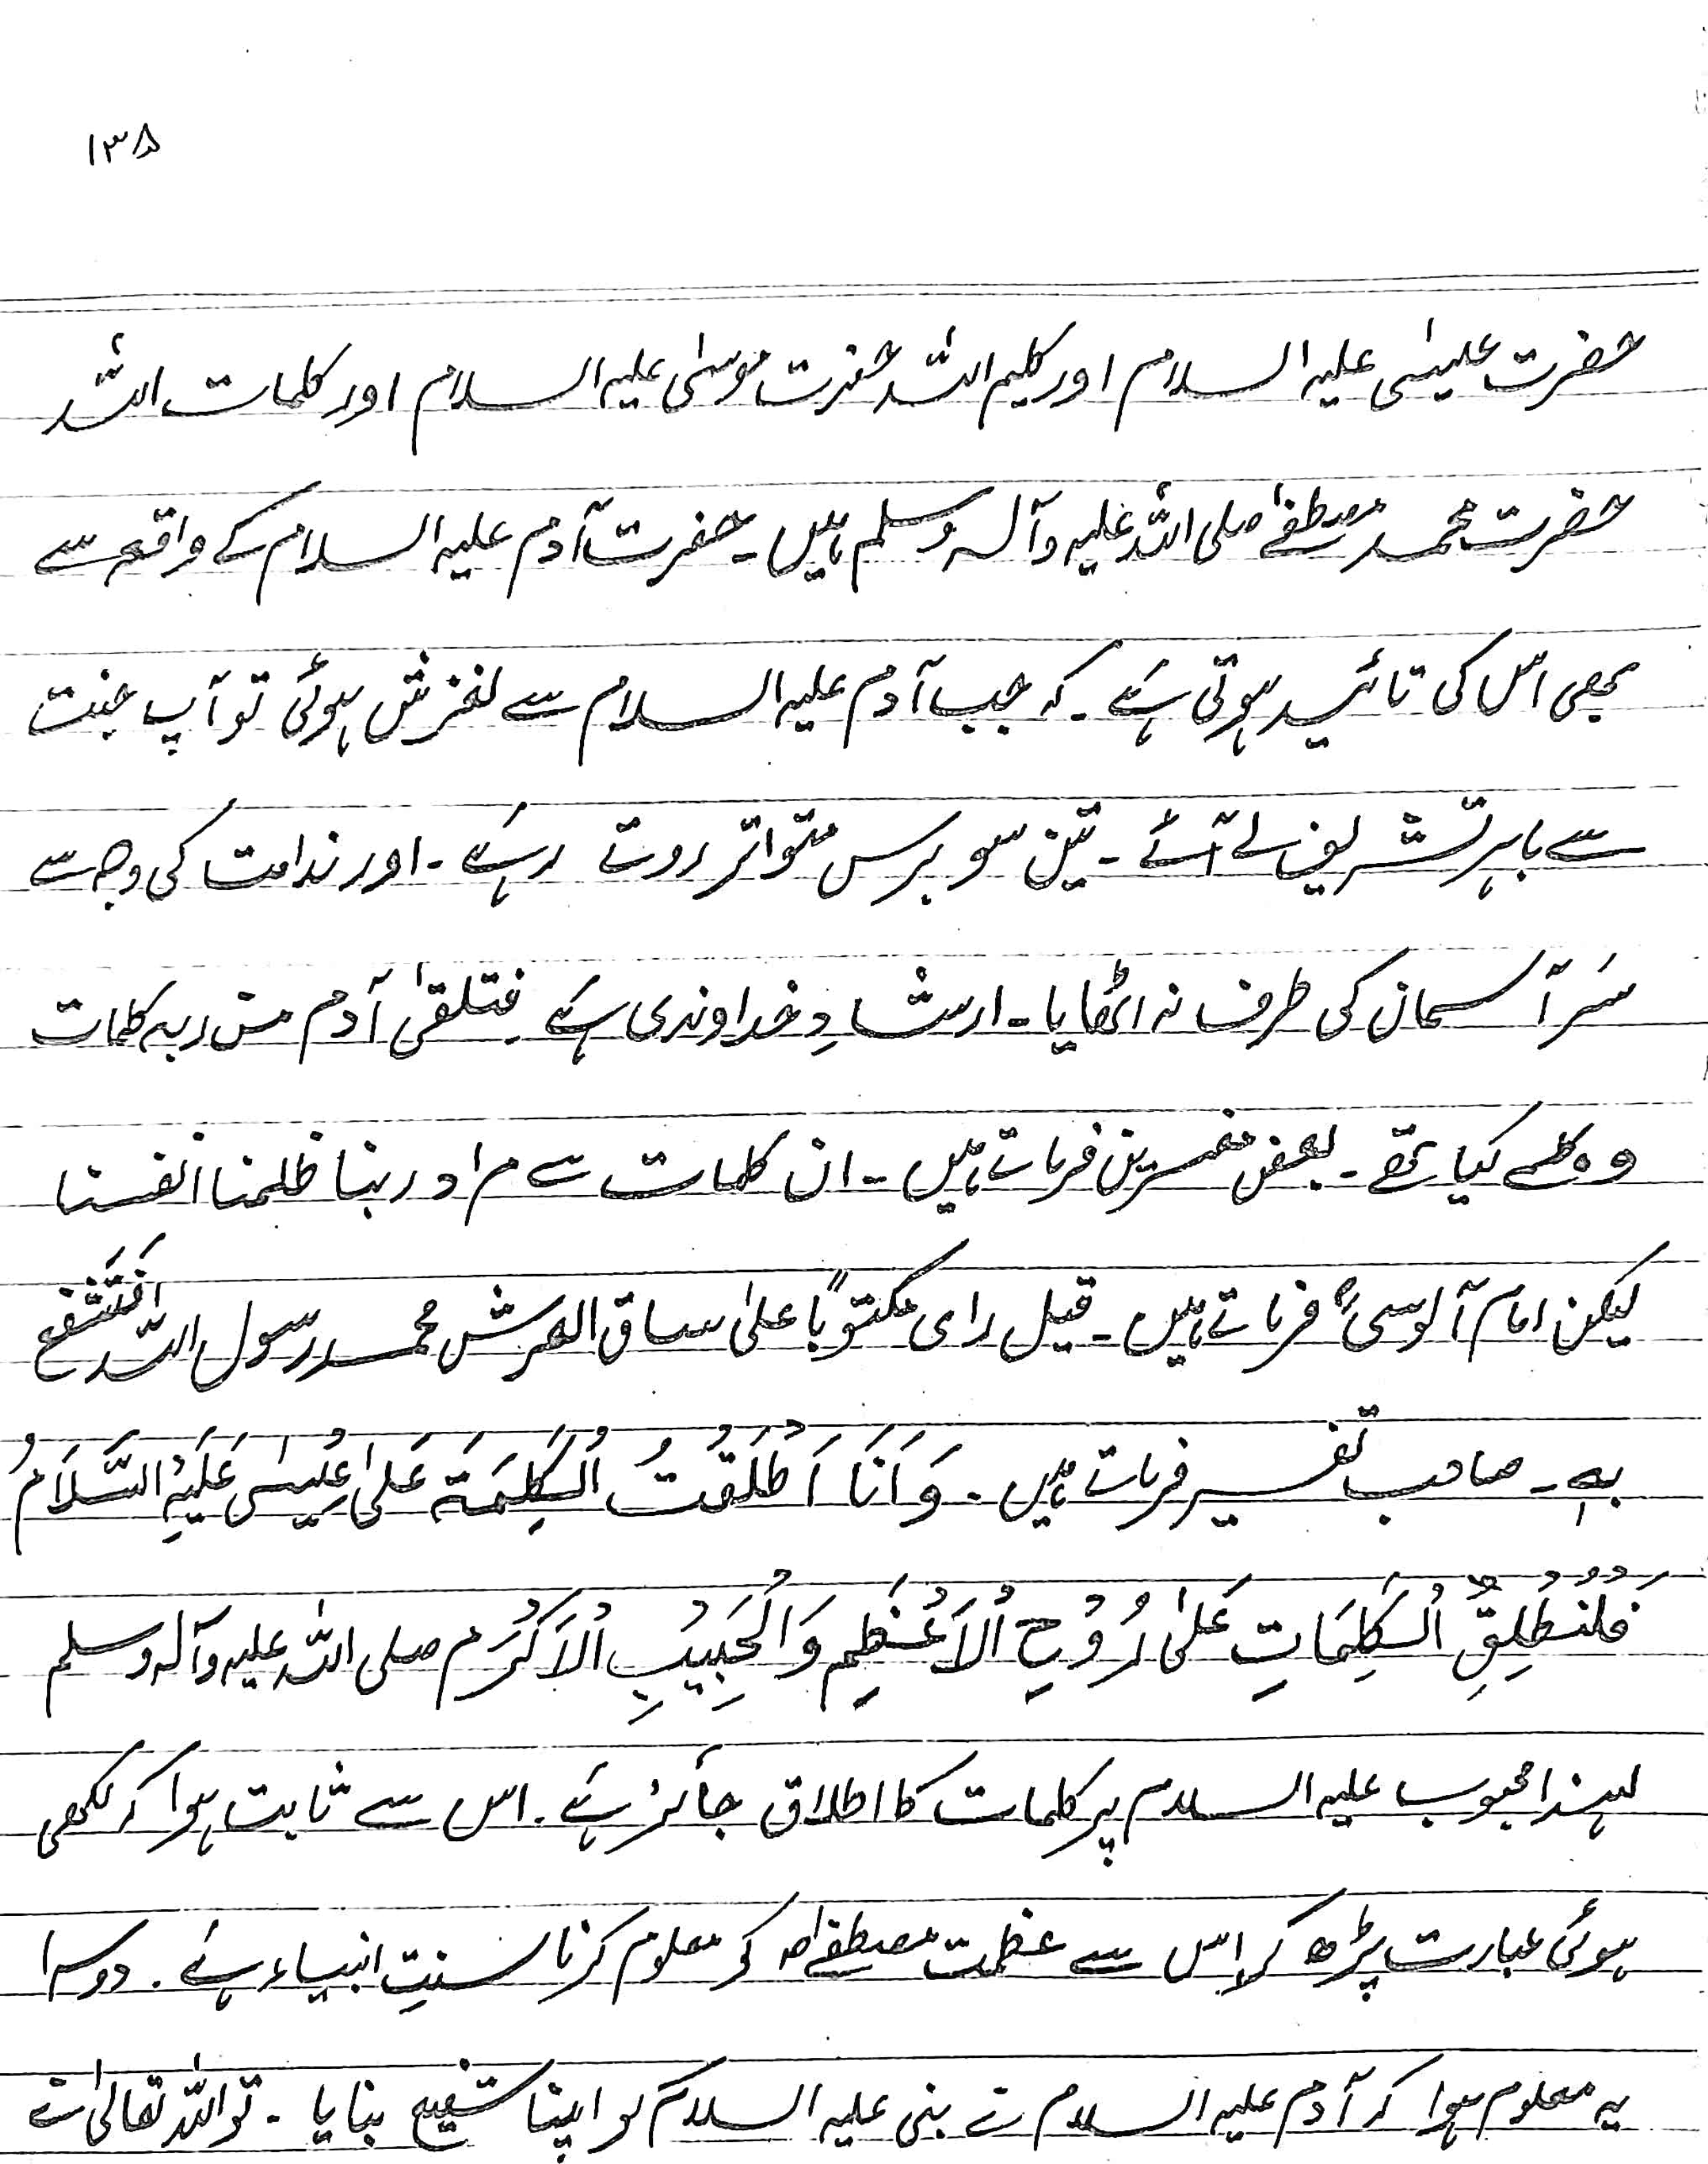 ۱۳۵
حضرت عیسٰی علیہ السلام اور کلیم اللہ حضرت موسٰی علیہ السلام اور کلمات اللہ
حضرت محمد مصطفےٰ صلی اللہ علیہ وآلہ وسلم ہیں۔ حضرت آدم علیہ السلام کے واقعہ سے
بھی اس کی تائید ہوتی ہے۔ کہ جب آدم علیہ السلام سے لغزش ہوئی تو آپ جنت
سے باہر تشریف لے آئے۔ تین سو برس متواتر روتے رہے۔ اور ندامت کی وجہ سے
سَر آسمان کی طرف نہ اٹھایا۔ ارشادِ خداوندی ہے۔ فتلقیٰ آدم من ربہ کلمات
وہ کلمے کیا تھے۔ بعض مفسرین فرماتے ہیں۔ ان کلمات سے مراد ربنا ظلمنا انفسنا
لیکن امام آلوسیؒ فرماتے ہیں۔ قیل رای مکتوباً علیٰ ساق العرش محمد رسول اللہ فَتَشَفع
بہٖ۔ صاحب تفسیر فرماتے ہیں۔ وَاَنَا اَطْلَقْتُ الْکَلِمَۃَ عَلیٰ عِیْسٰی عَلَیْہِ السَّلَامُ
فَلْنُطْلِقُ الْکَلِمَاتِ عَلیٰ رُوْحِ الْاَعْظَمِ وَالْحَبِیْبِ الْاَکْرَم صلی اللہ علیہ وآلہ وسلم
لہٰذا محبوب علیہ السلام پر کلمات کا اطلاق جائز ہے۔ اس سے ثابت ہوا کہ لکھی
ہوئی عبارت پڑھ کر اس سے عظمت مصطفےٰؐ کو معلوم کرنا سنتِ انبیاء ہے۔ دوسرا
یہ معلوم ہوا کہ آدم علیہ السلام نے نبی علیہ السلام کو اپنا شفیع بنایا۔ تو اللہ تعالیٰ نے